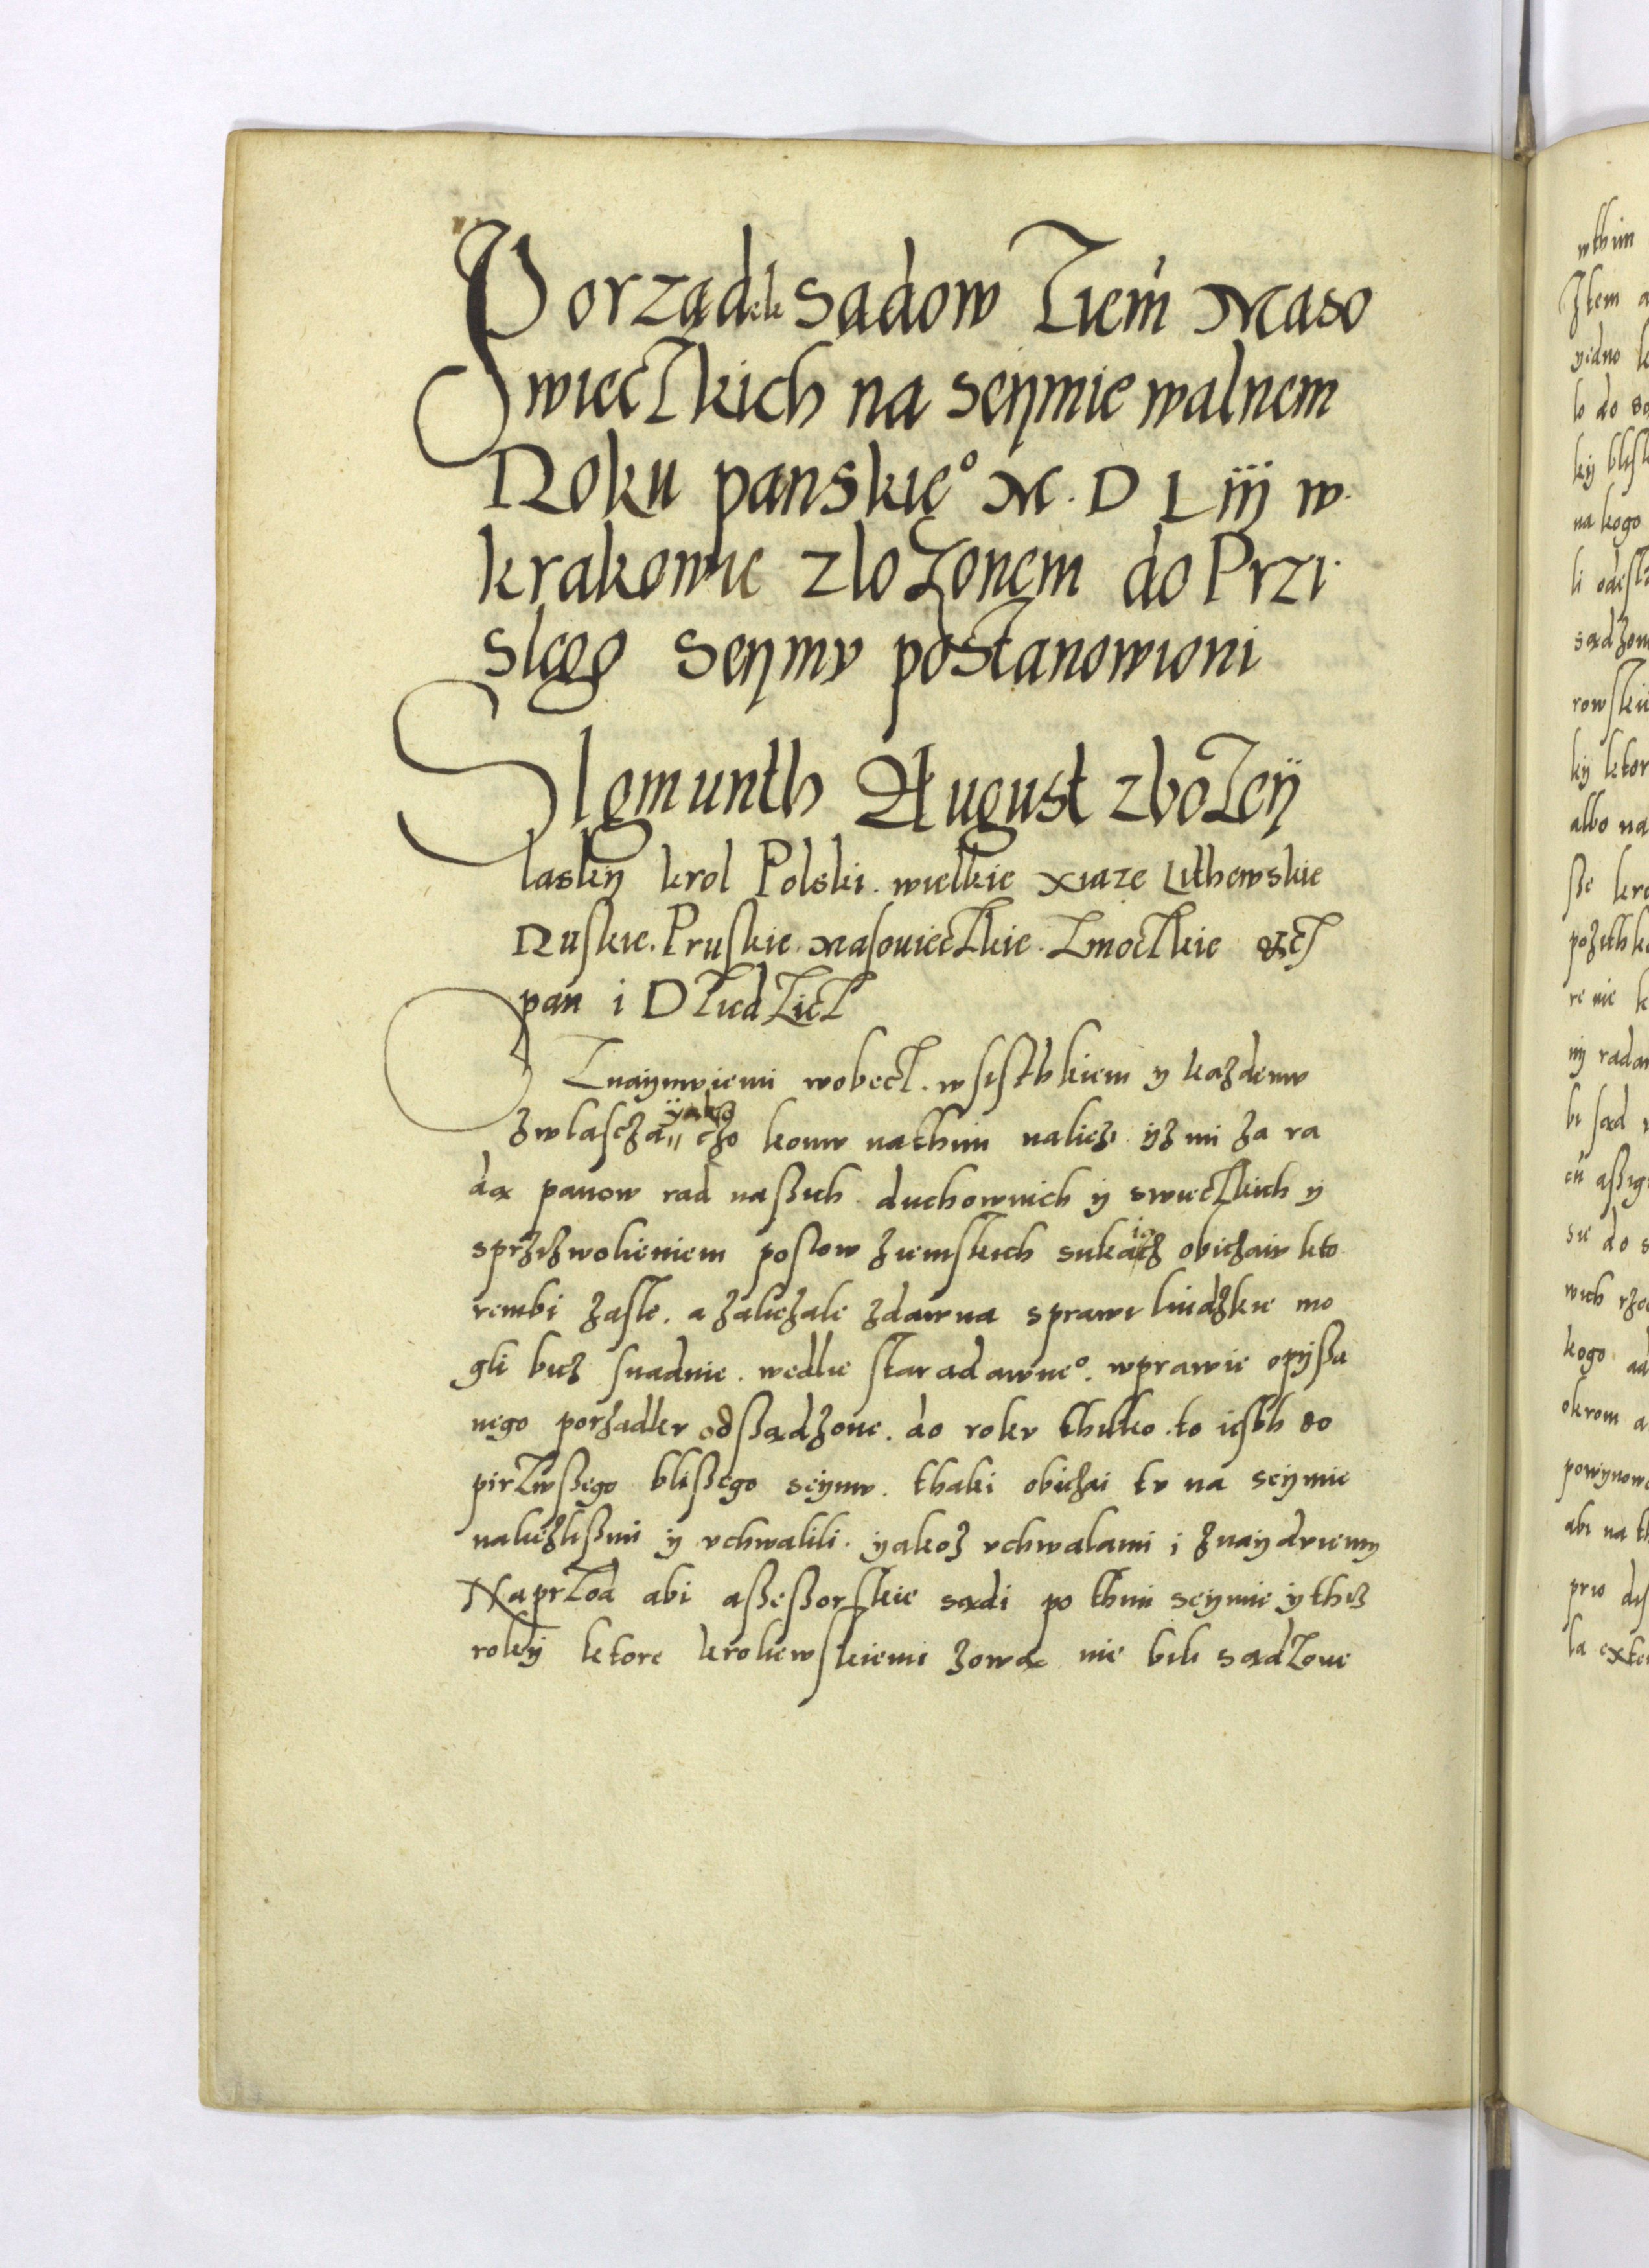 Porządek sadow Ziem Maso
wieczkich na seÿmie walnem
Roku panskieº M. D Liij w
krakowie zlozonem do Przi
slego seÿmv postanowioni
Sigmunth August zbozeÿ
laskÿ krol Polski. wielkie xiaze Lithewskie
Ruskie. Pruskie. Masouieczkie. Zmoczkie &cz
pan i Dziedzicz
Znaÿmviemi wobecz. wsisthkiem y kazdemv
zwlascza ÿako czo komv nathim naliezi ÿz mi za ra
dą panow rad naßich duchownich ÿ swieczkich ÿ
sprzizwolieniem poslow ziemskich sukaiącz obiczaiv kto
rembi zaszle. a zaliezale zdawna sprawi liudzkie mo
gli bicz snadnie. wedlie staradawneº. wprawie opÿßa
nego porządkv odßądzone. do rokv thilko. to iesth do
pirzwßego blißego seÿmv. thaki obiczai tv na seÿmie
naliezlißmi ÿ vchwalili. ÿakoz vchwalami i znaÿdviemy
Naprzod abi aßeßorskie sądi po thim seÿmie ÿ thez
rokÿ ktore kroliewskiemi zową nie bili sądzone
wthim
Item a
yedno k
lo do są
kÿ blisk
na kogo
li odesl
sądzon
rowskie
kÿ ktor
albo na
ße kro
pozithk
re nie k
ÿ radam
bi sąd
cii aßig
sie do s
wich rzo
kogo ad
okrom a
powÿnow
abi na th
prio dis
la exte